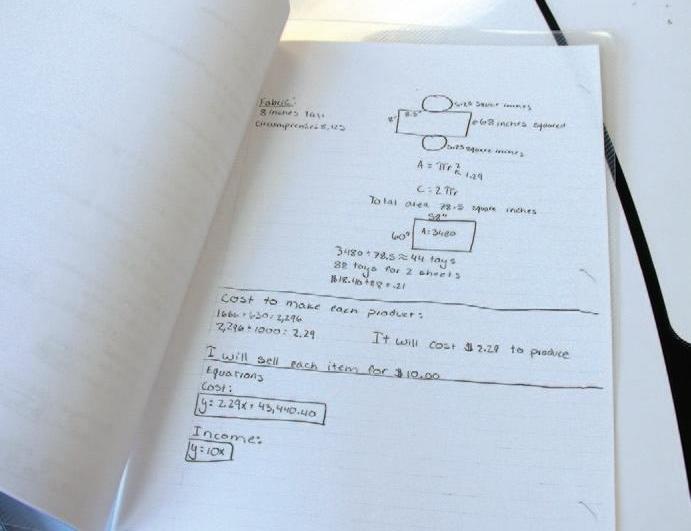 Fabric:
8 inches tall
5.25 square inches
8" 8.5" 68 inches squared
5.25 square inches
A = πr²
1.29
C = 2πr
Total area 78.5 square inches
58"
60" A=3480
3480 ÷ 78.5 ≈ 44 toys
88 toys for 2 sheets
$18.40 ÷ 88 = .21
Cost to make each product:
1666 + 630 = 2,296
2,296 ÷ 1000 = 2.29 It will cost $2.29 to produce
I will sell each item for $10.00
Equations
Cost:
y = 2.29x + 43,440.40
Income:
y = 10x